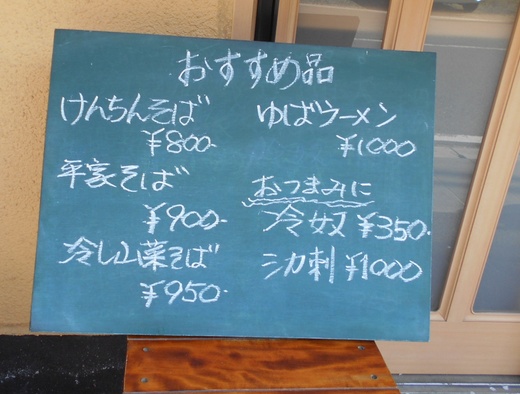 おすすめ品
けんちんそば
¥800-
平家そば
¥900-
冷し山菜そば
¥950-
ゆばラーメン
¥1000
おつまみに
冷奴 ¥350-
シカ刺 ¥1000